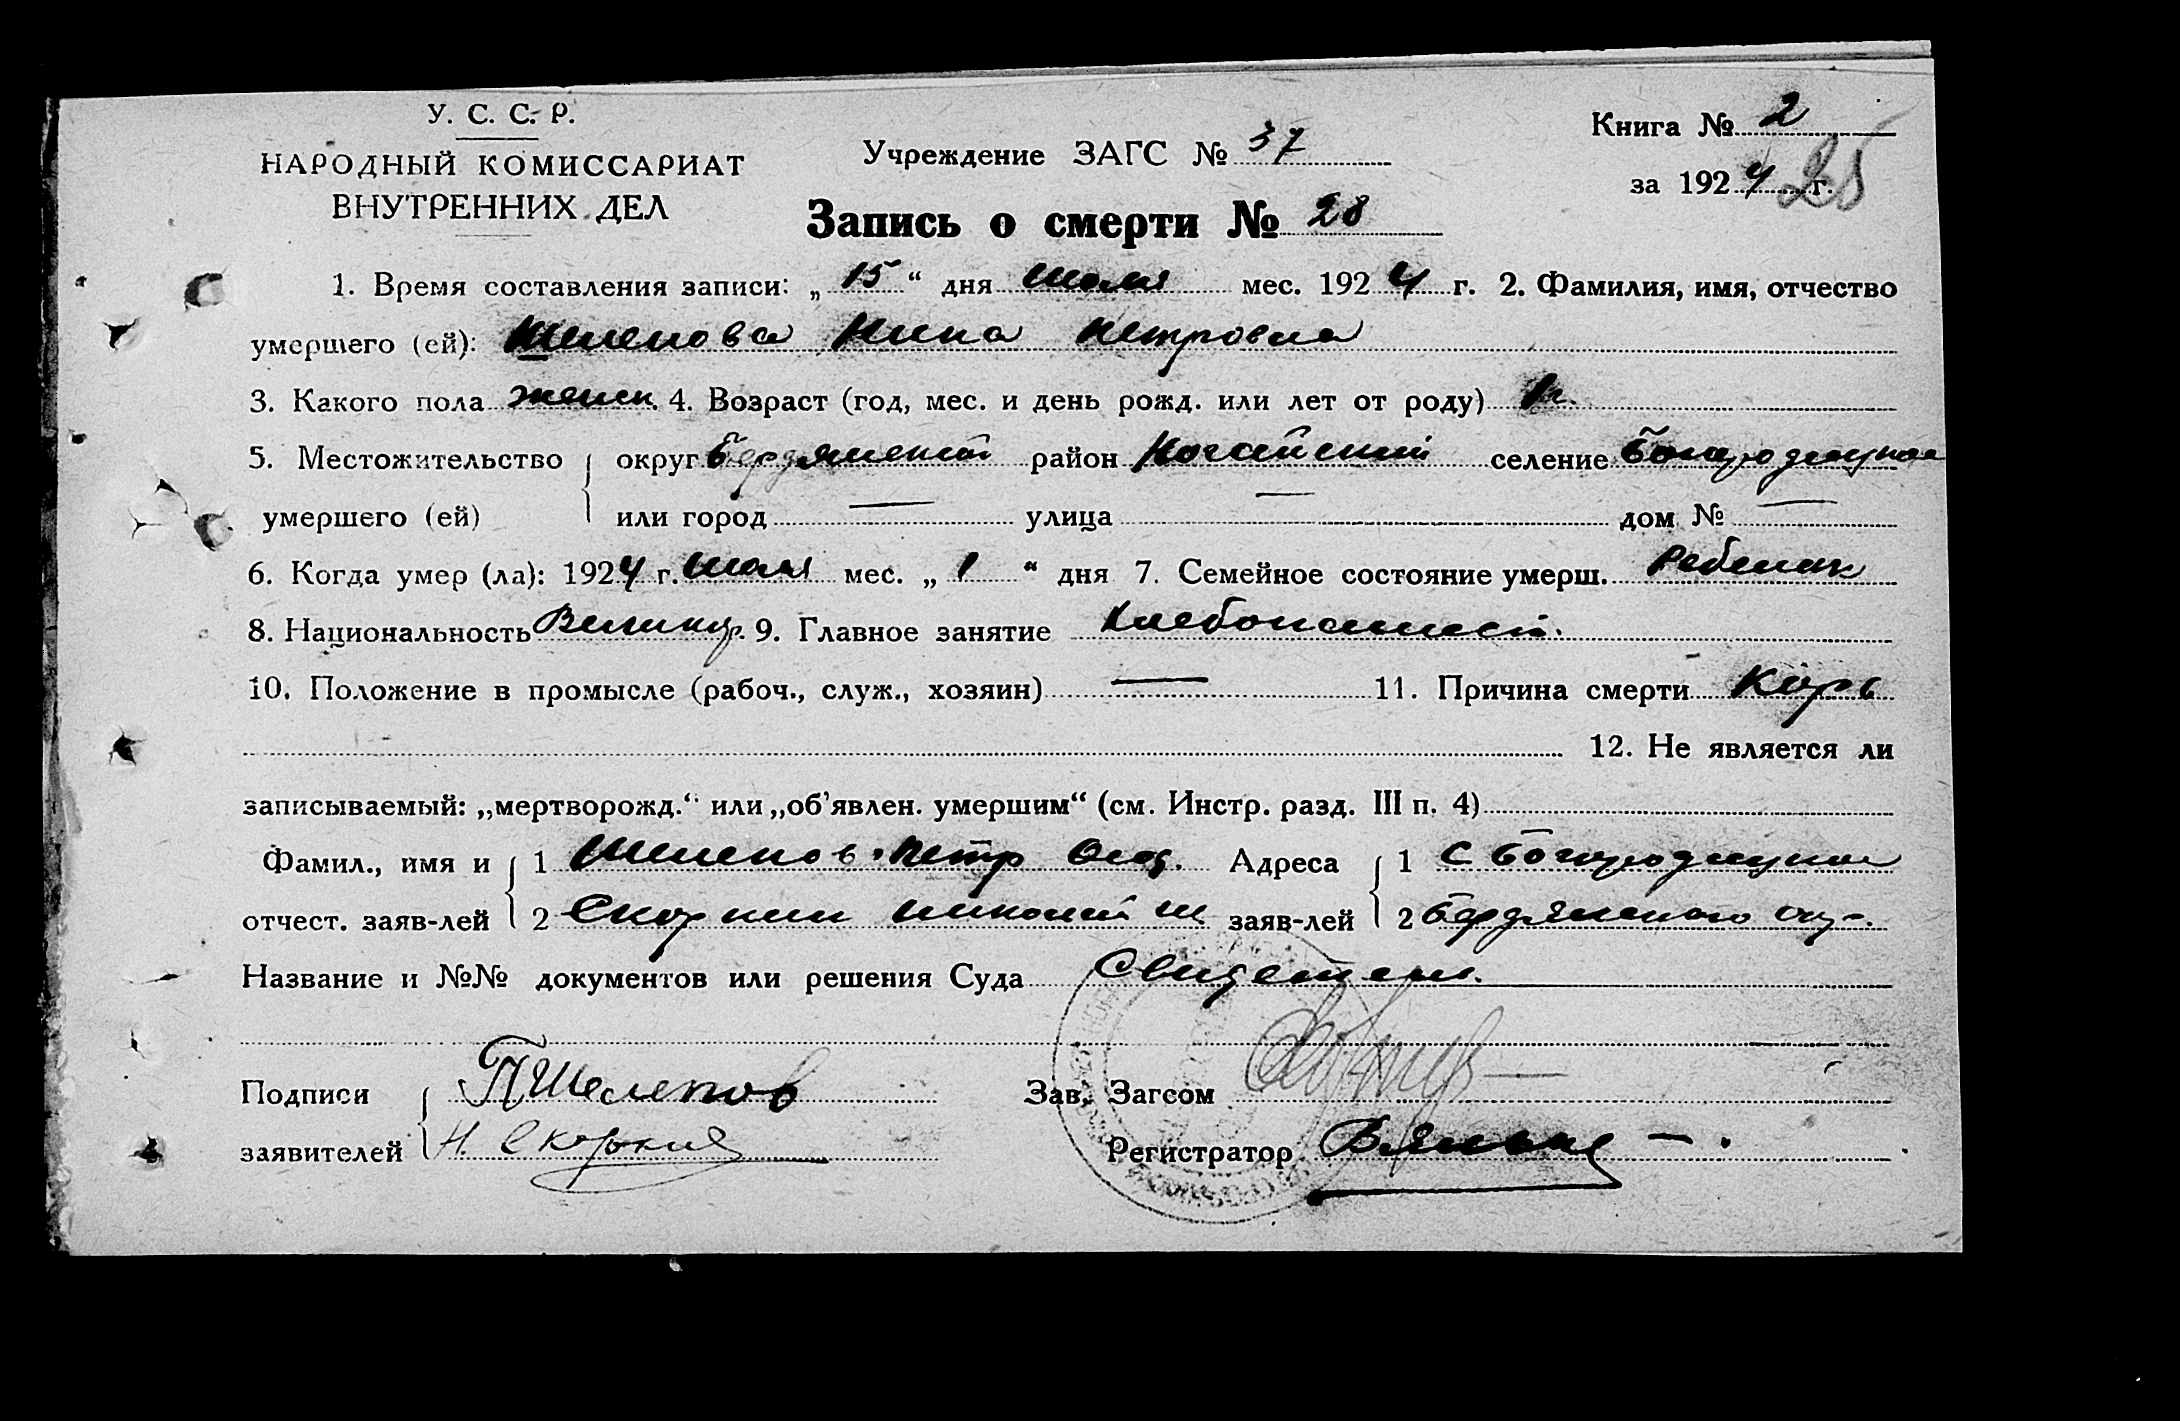 У. С. С. Р.
НАРОДНЫЙ КОМИССАРИАТ
ВНУТРЕННИХ ДЕЛ
Учреждение ЗАГС № 37
Книга № 2
за 1924 г. 28
Запись о смерти № 28
1. Время составления записи: „15“ дня июля мес. 1924 г. 2. Фамилия, имя, отчество
умершего (ей): Шелепова Нина Петровна
3. Какого пола женск. 4. Возраст (год, мес. и день рожд. или лет от роду) 1 г.
5. Местожительство округ Бердянский район Ногайский селение
умершего (ей) или город — улица — дом № —
6. Когда умер (ла): 1924 г. июля мес. „1“ дня 7. Семейное состояние умерш. Ребенок
8. Национальность Великор. 9. Главное занятие Хлебопашест.
10. Положение в промысле (рабоч., служ., хозяин) — 11. Причина смерти Корь
12. Не является ли
записываемый: „мертворожд.“ или „об'явлен. умершим“ (см. Инстр. разд. III п. 4)
Фамил., имя и 1 Шелепов Петр Адреса 1 С
отчест. заяв-лей 2 Скоркин Николай заяв-лей 2 Бердянского окр.
Название и №№ документов или решения Суда Свидетели.
Подписи П Шелепов Зав. Загсом
заявителей Н. Скоркин Регистратор